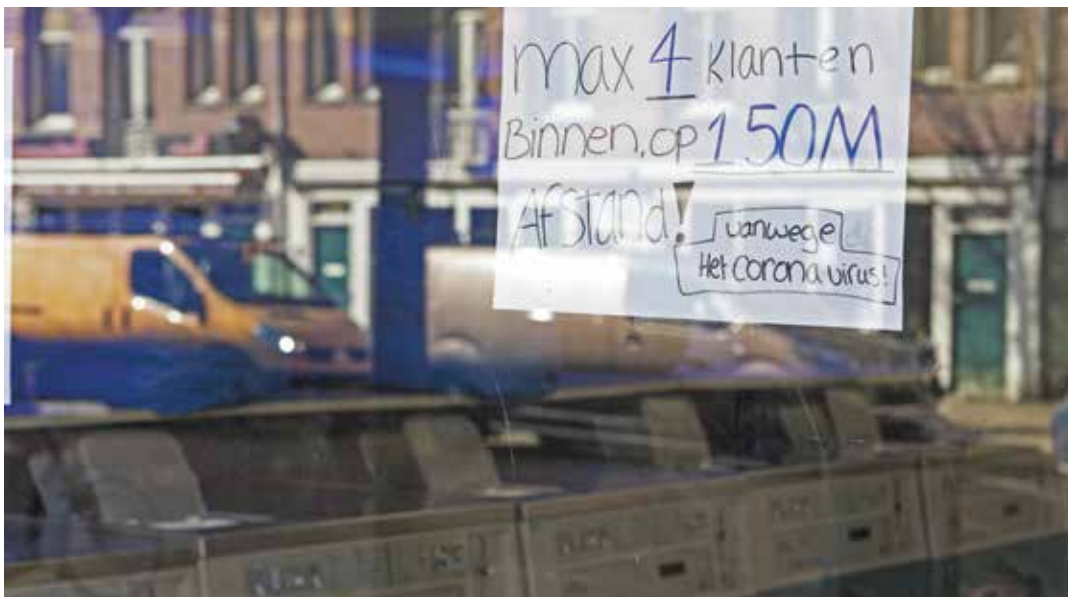 Max 4 klanten
Binnen, op 1 50M
Afstand!
vanwege
Het corona virus!